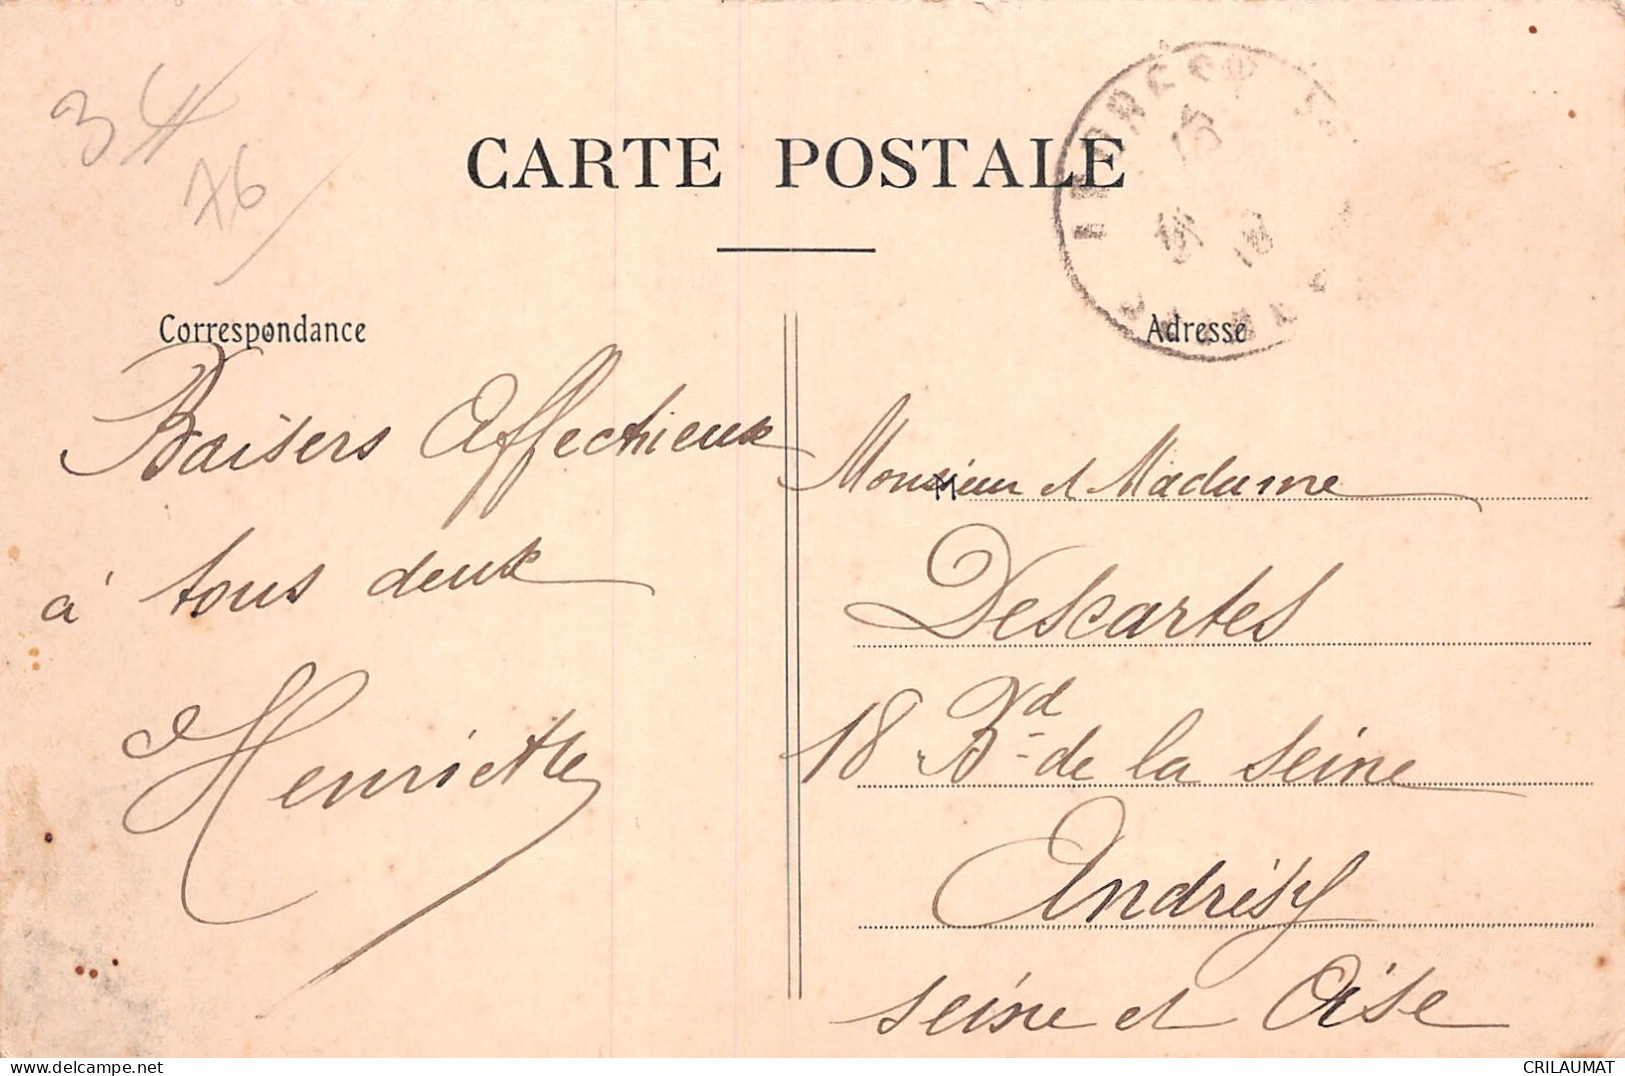 34
76
CARTE POSTALE
Correspondance
Adresse
Baisers Affectieux
à tous deux
Henriette
Monsieur et Madame
Descartes
18 Bd de la Seine
Andrésy
Seine et Oise
CRILAUMAT